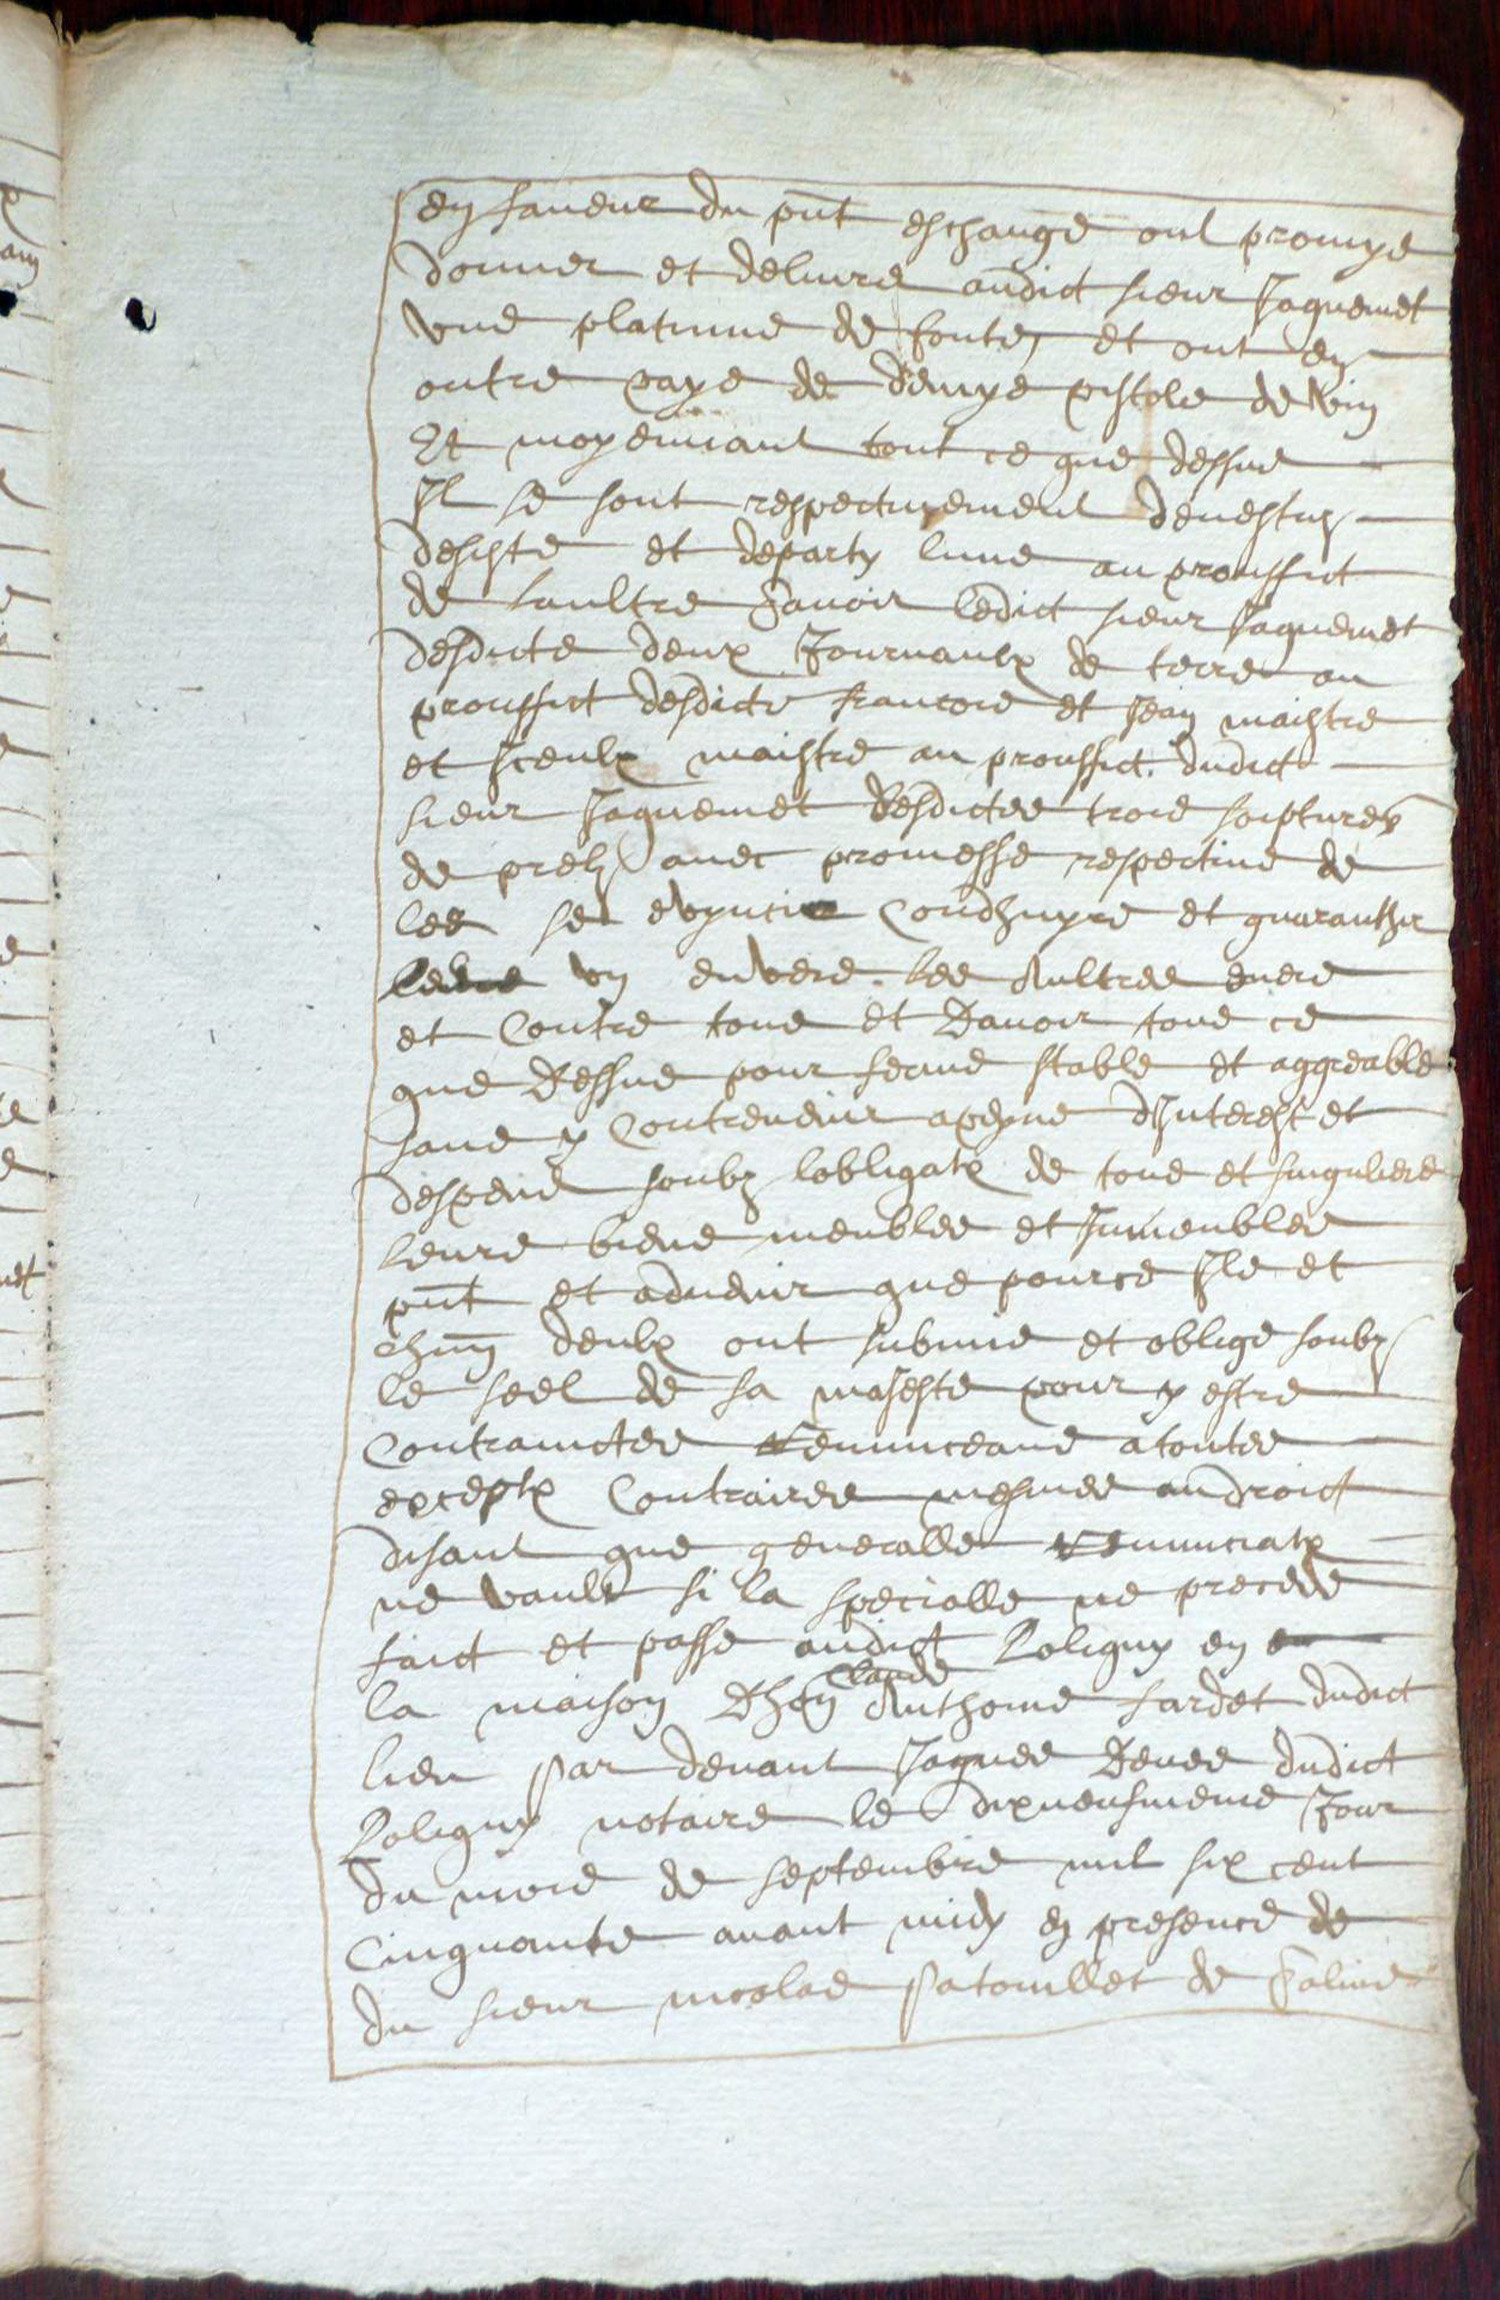 en faveur du pnt eschange ont promys
donner et delivre audict sieur Jaquemet
une platinne de fonte, et ont en
outre paye de demye pistole de vin
Et moyennant tout ce que dessus
Il se sont respectivement devestuz
desiste et departy lune au prouffict
de laultre Savoir ledict sieur Jaquemet
desdicts deux Journaulx de terre au
prouffict desdicts francois et Jean maistre
et Iceulx maistre au prouffict dudict
sieur Jaquemet desdictes trois soipturez
de prelz avec promesse respective de
les se condhuyre et guaranthir
un envers les Aultres envers
et Contre tous et Davoir tous ce
que Dessus pour ferme stable et aggreable
sans y Contrevenir apeyne dInterest et
despens soubz lobligatx de tous et singuliers
leurs biens meubles et Immeubles
pnt et advenir que pource Ils et
chun deulx ont submis et oblige soubz
le seel de sa majeste pour y estre
Contrainctes Renunceans atoutes
exceptx Contraires mesmes audroict
disant que generalle Renunciatx
ne vault si la specialle ne precede
faict et passe audict Poligny en
la maison Dhon Claude Anthoine fardet dudict
lieu Par devant Jaques Deves dudict
Poligny notaire le dixneufvieme Jour
du mois de septembre mil six cent
Cinquante avant midy en presence de
du sieur nicolas Patouillet de Salins